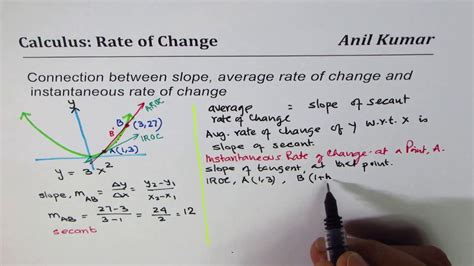 Calculus: Rate of Change
Anil Kumar
Connection between slope, average rate of change and
instantaneous rate of change
y
AROC
B
B'
(3,27)
IROC
A(1,3)
x
y = 3x²
slope, m_AB = Δy/Δx = (y₂-y₁)/(x₂-x₁)
m_AB = (27-3)/(3-1) = 24/2 = 12
secant
average rate of change = slope of secant
Avg. rate of change of y w.r.t. x is
slope of secant.
Instantaneous Rate of Change at a Point, A.
slope of tangent, at that point.
IROC, A(1,3), B(1+h